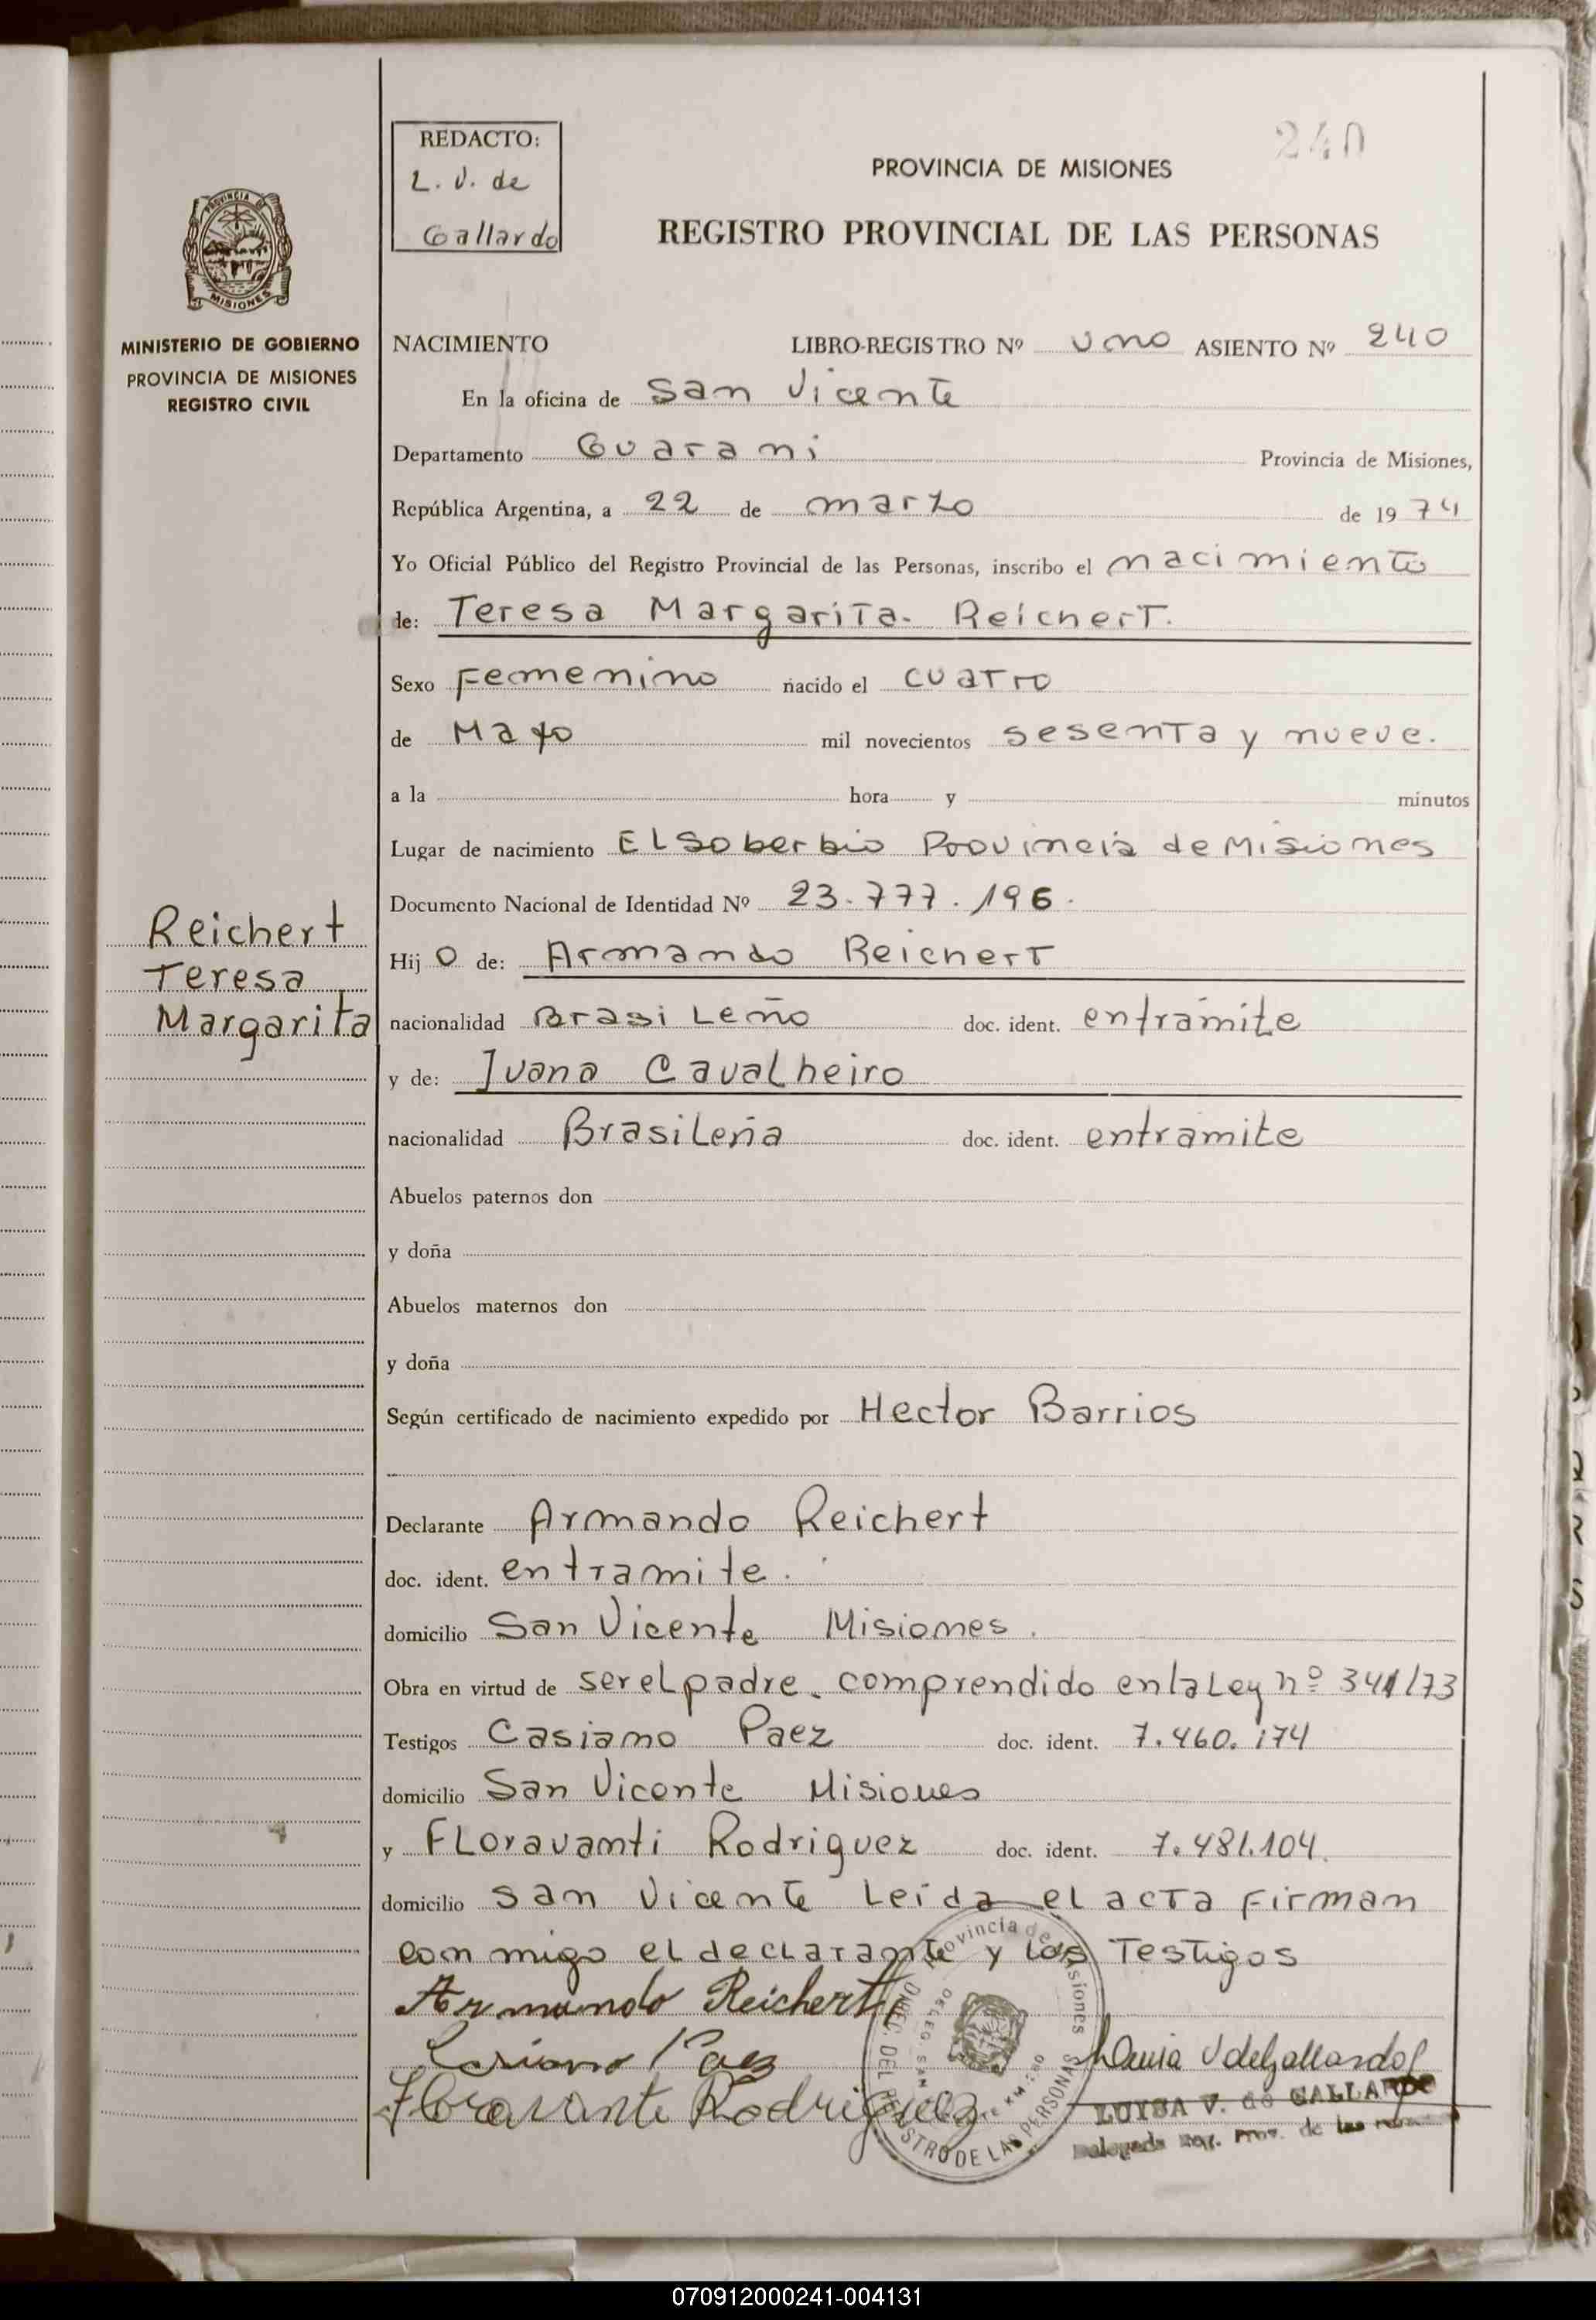 240
REDACTO:
L. V. de
Gallardo
PROVINCIA DE MISIONES
REGISTRO PROVINCIAL DE LAS PERSONAS
PROVINCIA DE
MISIONES
MINISTERIO DE GOBIERNO
PROVINCIA DE MISIONES
REGISTRO CIVIL
NACIMIENTO LIBRO-REGISTRO Nº uno ASIENTO Nº 240
En la oficina de San Vicente
Departamento Guarani Provincia de Misiones,
República Argentina, a 22 de marzo de 1974
Yo Oficial Público del Registro Provincial de las Personas, inscribo el nacimiento
de: Teresa Margarita. Reichert.
Sexo Femenino nacido el cuatro
de Mayo mil novecientos sesenta y nueve.
a la hora y minutos
Lugar de nacimiento El Soberbio Provincia de Misiones
Documento Nacional de Identidad Nº 23.777.196.
Reichert
Teresa
Margarita
Hijo de: Armando Reichert
nacionalidad Brasileño doc. ident. entramite
y de: Juana Cavalheiro
nacionalidad Brasileña doc. ident. entramite
Abuelos paternos don
y doña
Abuelos maternos don
y doña
Según certificado de nacimiento expedido por Hector Barrios
Declarante Armando Reichert
doc. ident. entramite.
domicilio San Vicente Misiones.
Obra en virtud de ser el padre. comprendido en la Ley nº 341/73
Testigos Casiano Paez doc. ident. 7.460.174
domicilio San Vicente Misiones
y Floravanti Rodriguez doc. ident. 7.481.104.
domicilio San Vicente Leida el acta firman
con migo el declarante y los Testigos
Armando Reichert
Casiano Paez
Floravante Rodriguez
Provincia de Misiones
DEL REGISTRO DE LAS PERSONAS
Luisa V de Gallardo
LUISA V. de GALLARDO
Delegada Reg. Prov. de las
070912000241-004131